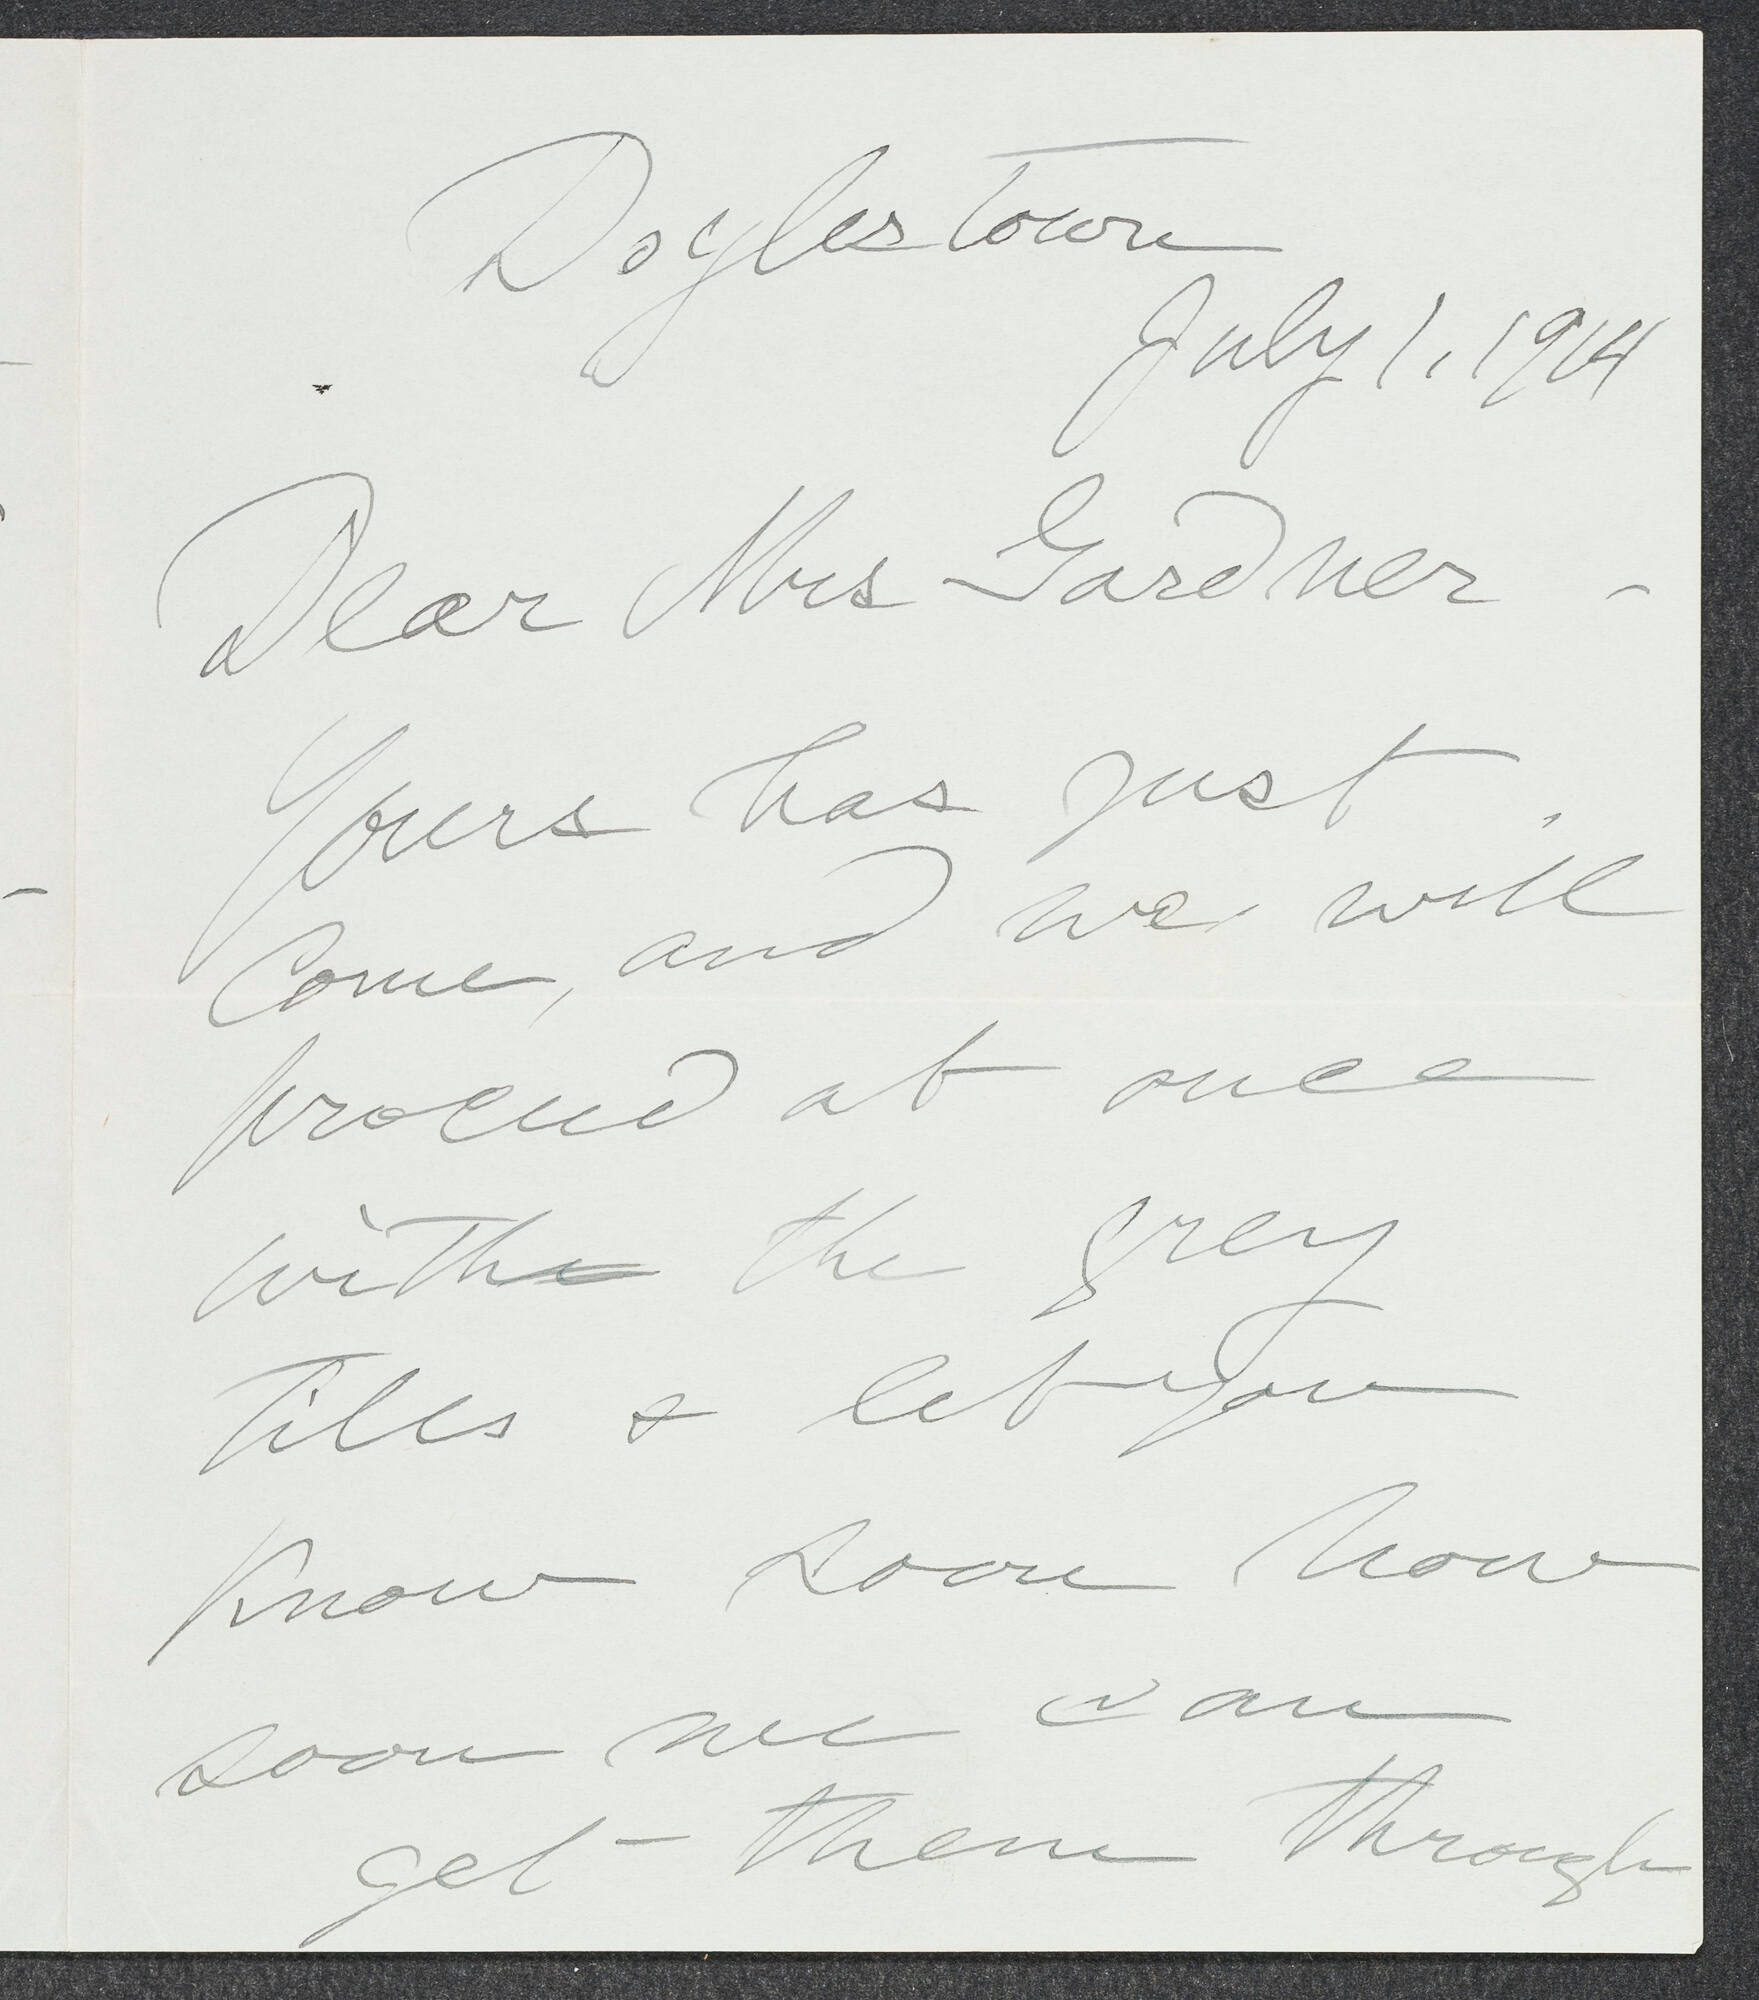 Doylestown
July 1, 1914
Dear Mrs Gardner -
Yours has just
come, and we will
proceed at once
with the grey
Tiles & let you
know soon how
soon we can
get them through